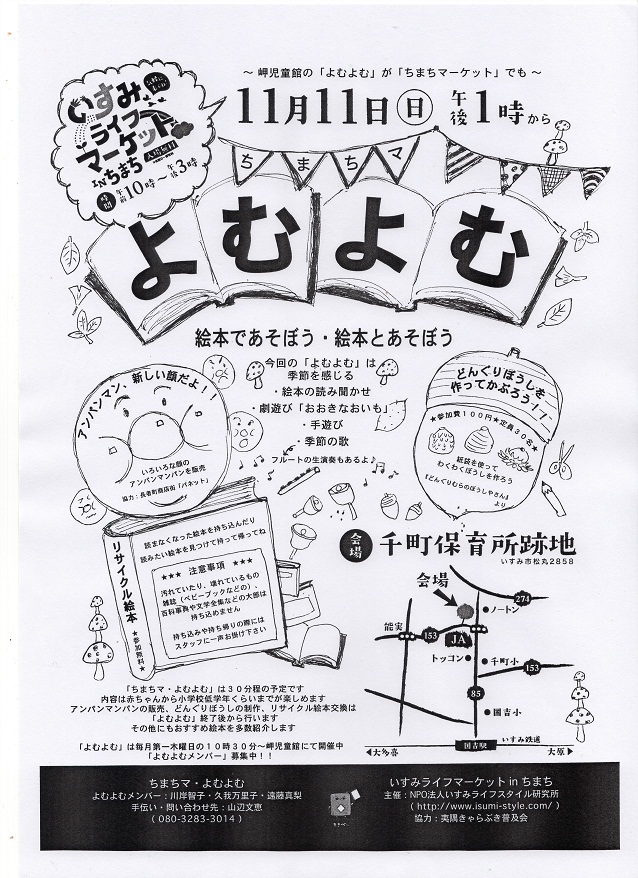 ～ 岬児童館の「よむよむ」が「ちまちマーケット」でも ～
11月11日㊐ 午後1時から
いすみ
ライフ
マーケット
INちまち 入場無料
時間 午前10時～午後3時
ちまちマ
よむよむ
絵本であそぼう・絵本とあそぼう
今回の「よむよむ」は
季節を感じる
・絵本の読み聞かせ
・劇遊び「おおきなおいも」
・手遊び
・季節の歌
フルートの生演奏もあるよ♪
アンパンマン、新しい顔だよ！！
いろいろな顔の
アンパンマンパンを販売
協力：長者町商店街「パネット」
どんぐりぼうしを
作ってかぶろう！！
★参加費100円★定員30名★
紙袋を使って
わくわくぼうしを作ろう
『どんぐりむらのぼうしやさん』
より
リサイクル絵本
★参加無料★
読まなくなった絵本を持ち込んだり
読みたい絵本を見つけて持って帰ってね
★★★ 注意事項 ★★★
汚れていたり、壊れているもの
雑誌（ベビーブックなどの）、
百科事典や文学全集などの大部は
持ち込めません
持ち込みや持ち帰りの際には
スタッフに一声お掛け下さい
会場 千町保育所跡地
いすみ市松丸2858
会場
274
ノートン
能実
153
JA
トッコン
千町小
153
85
国吉小
国吉駅
いすみ鉄道
大多喜
大原
「ちまちマ・よむよむ」は30分程の予定です
内容は赤ちゃんから小学校低学年くらいまでが楽しめます
アンパンマンパンの販売、どんぐりぼうしの制作、リサイクル絵本交換は
「よむよむ」終了後から行います
その他にもおすすめ絵本を多数紹介します
「よむよむ」は毎月第一木曜日の10時30分～岬児童館にて開催中
「よむよむメンバー」募集中！！
ちまちマ・よむよむ
よむよむメンバー：川岸智子・久我万里子・遠藤真梨
手伝い・問い合わせ先：山辺文恵
（080-3283-3014）
いすみライフマーケット in ちまち
主催：NPO法人いすみライフスタイル研究所
（http://www.isumi-style.com/）
協力：夷隅きゃらぶき普及会